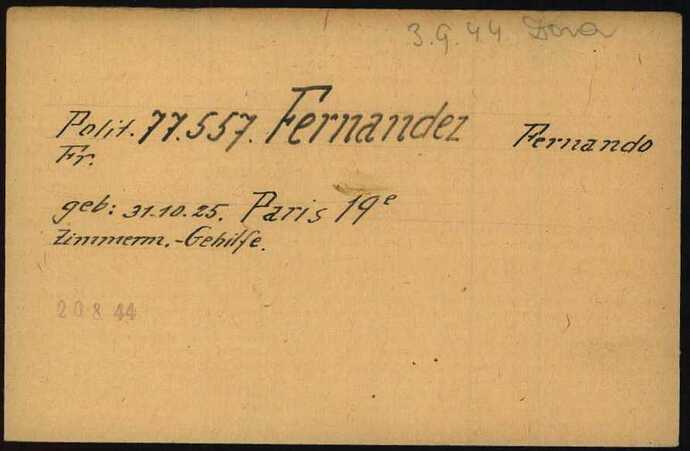 3.9.44 Dora
Polit. 77.557. Fernandez Fernando
Fr.
geb: 31.10.25. Paris 19e
Zimmerm.-Gehilfe.
20 8 44